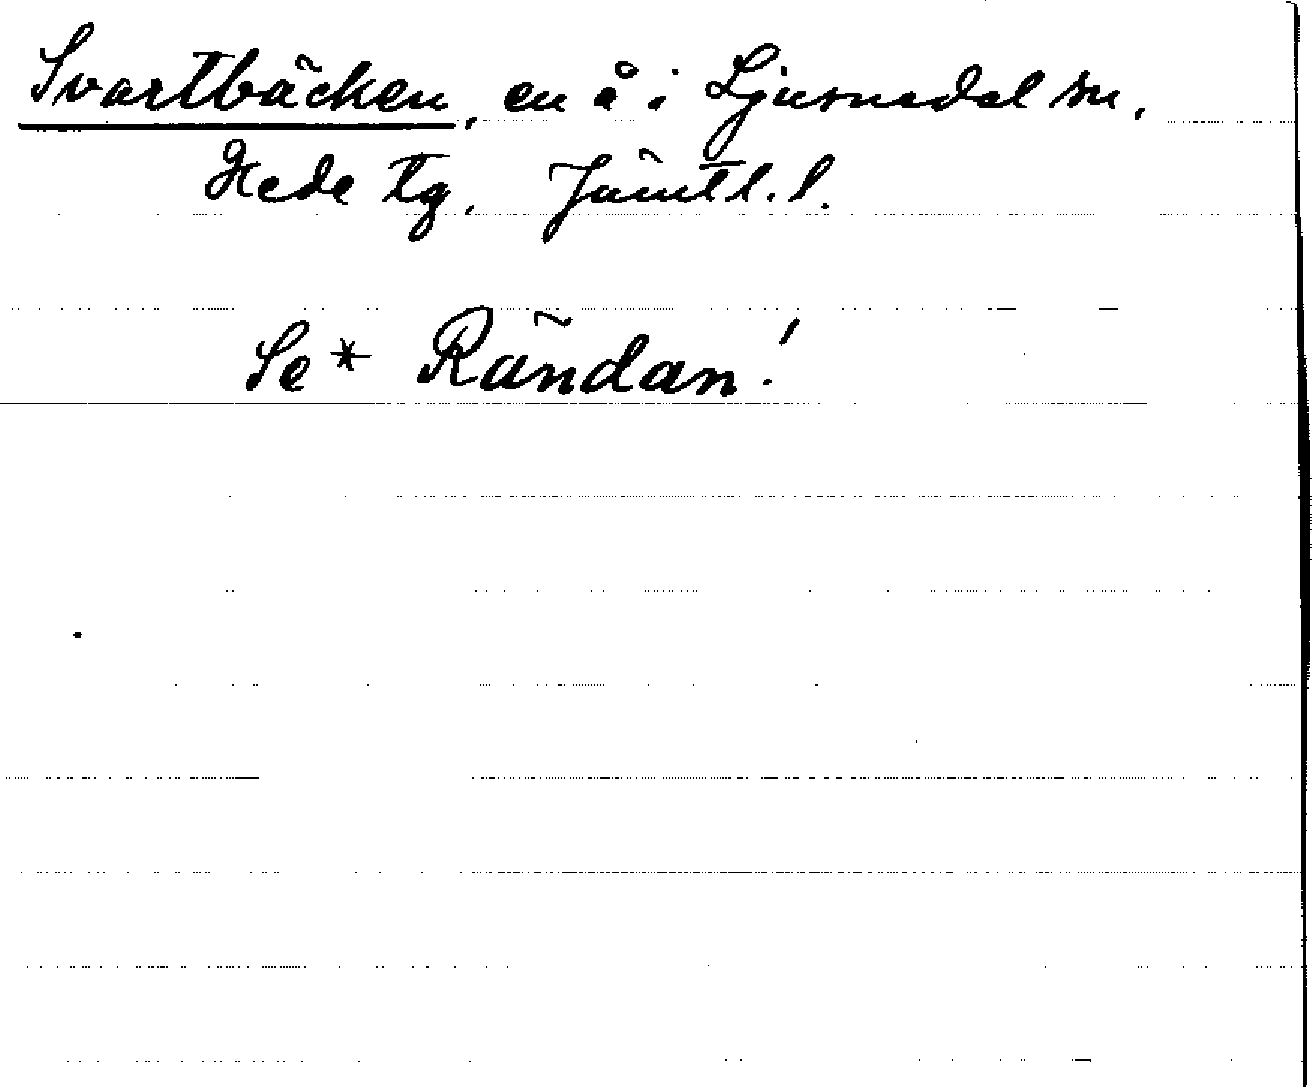 Svartbäcken, en å i Ljusnedal sn,
Hede tg, Jämtl. l.
Se * Rändan!